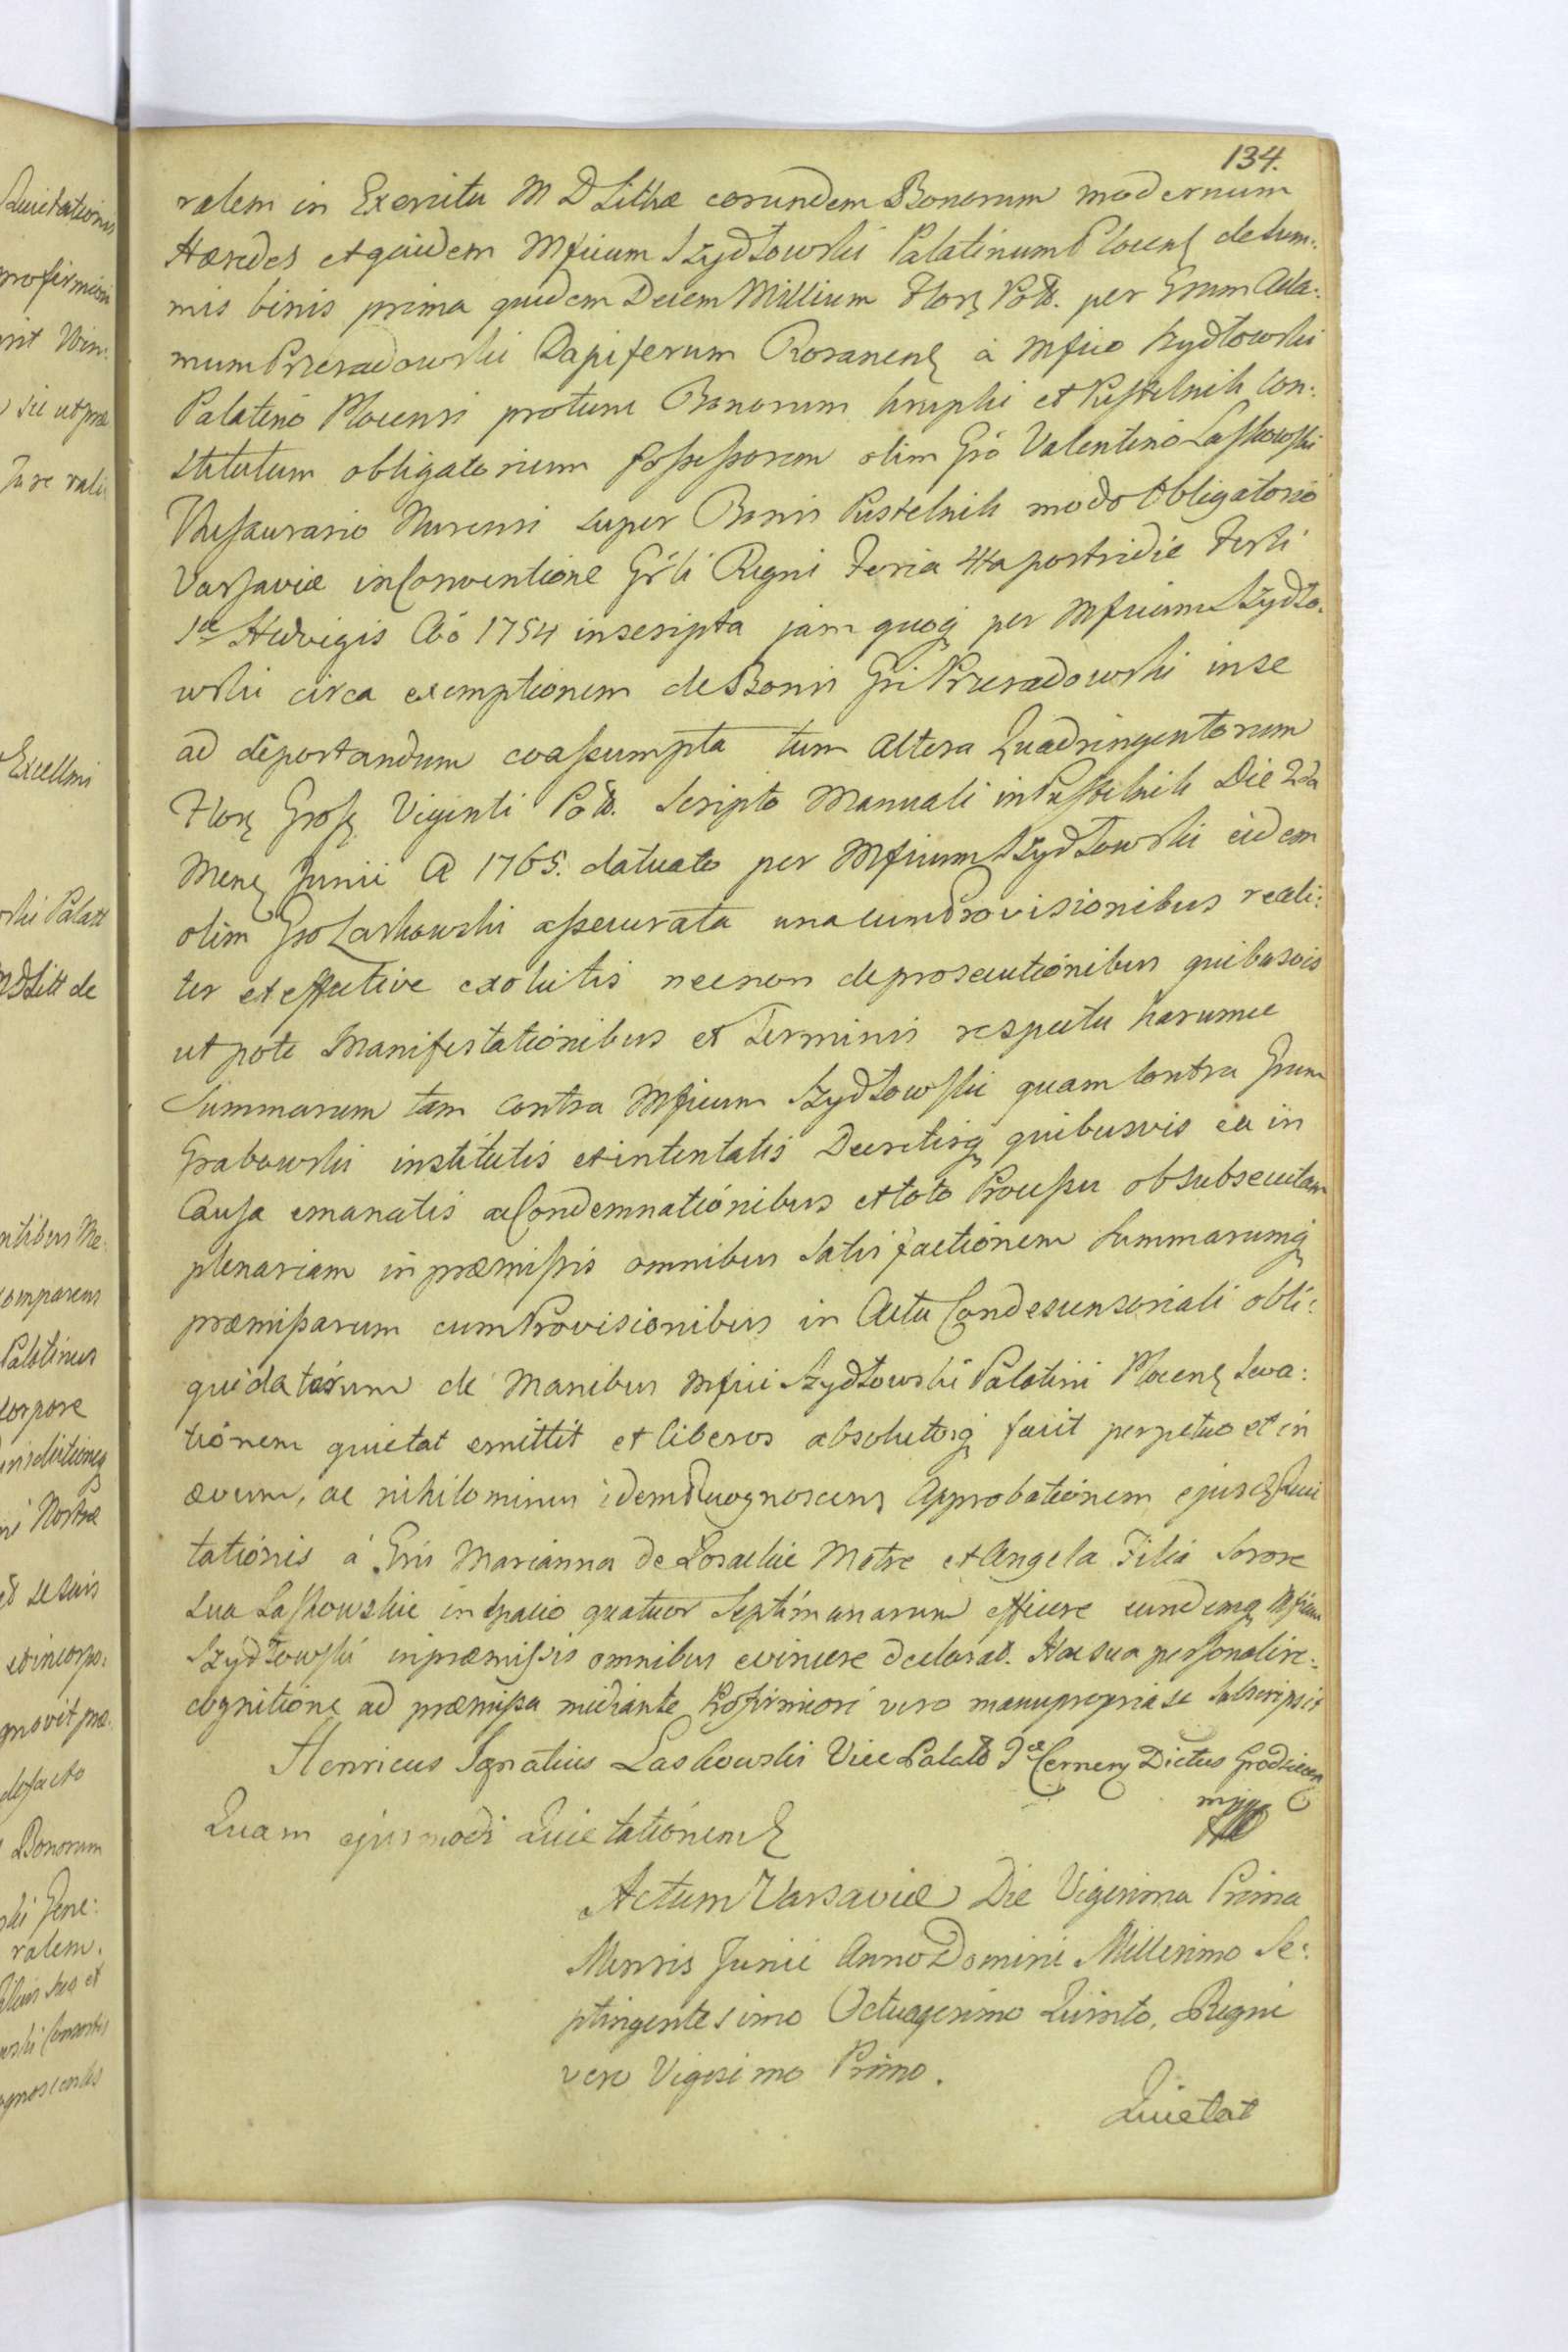 134.
ralem in Exercitu M D Litthæ eorundem Bonorum modernum
Hæredes et quidem Mficum Szydłowski Palatinum Plocens de Sum:
mis binis prima quidem Decem Millium Flor. Poll. per Gnum Ada:
mum Przeradowski Dapiferum Rozanens à Mfico Szydłowski
Palatino Plocensi protunc Bonorum et Pustelnik con:
stitutum obligatorium Possessorem olim Gso Valentino Laskowski
Thesaurario Nurensi super Bonis Pustelnik modo obligatorio
Varsaviæ in Conventione Gnli Regni Feria 4ta postridie Festi
Stæ Hedvigis Ao 1754 inscripta jam quoq per Mficum Szydło:
wski circa exemptionem de Bonis Gsi Przeradowski in se
ad deportandum coassumpta tum altera Quadringentorum
Flor Gross Viginti Poll. Scripto Manuali in Pustelnik Die 2da
Mens Junii A 1765. datuato per Mficum Szydłowski eidem
olim Gso Laskowski assecurata una cum Provisionibus reali:
ter et effective exolutis necnon de prosecutionibus quibusvis
utpote Manifestationibus et Terminis respectu harumce
Summarum tam contra Mficum Szydłowski quam contra Gsum
Grabowski institutis et intentatis Decretisq quibusvis ea in
Causa emanatis ac Condemnationibus et toto Processu ob subsecutam
plenariam in præmissis omnibus Satisfactionem Summarumq
præmissarum cum Provisionibus in Actu Condescensoriali obli:
quidatarum de Manibus Mfici Szydłowski Palatini Plocens Leva:
tionem quietat emittit et liberos absolutosq facit perpetuo et in
ævum, ac nihilominus idem Recognoscens Approbationem ejusd Quie
tationis à Gsis Marianna de Matre et Angela Filia Sorore
sua Laskowskie in spatio quatuor Septimanarum efficere eundemq Mficum
Szydłowski in præmissis omnibus evincere declarat. Hac sua personali re:
cognitione ad præmissa mediante Pro firmiori vero manu propria se Subscripsit
Henricus Ignatius Laskowski Vice Palat Dictus Grodziecen
mpp
Quam ejusmodi Quietationem
Actum Varsaviæ Die Vigesima Prima
Mensis Junii Anno Domini Millesimo Se:
ptingentesimo Octuagesimo Quinto, Regni
vero Vigesimo Primo.
Quietat